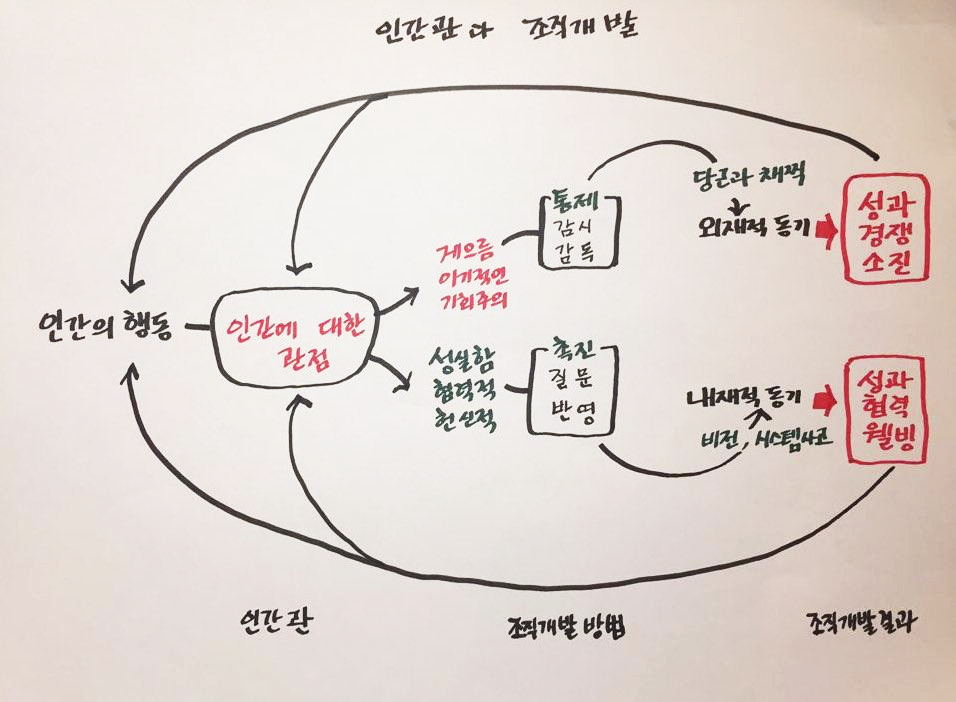 인간관과 조직개발
인간의 행동
인간에 대한
관점
게으름
이기적인
기회주의
통제
감시
감독
당근과 채찍
외재적 동기
성과
경쟁
소진
성실함
협력적
헌신적
촉진
질문
반영
내재적 동기
비전, 시스템사고
성과
협력
웰빙
인간관
조직개발 방법
조직개발 결과